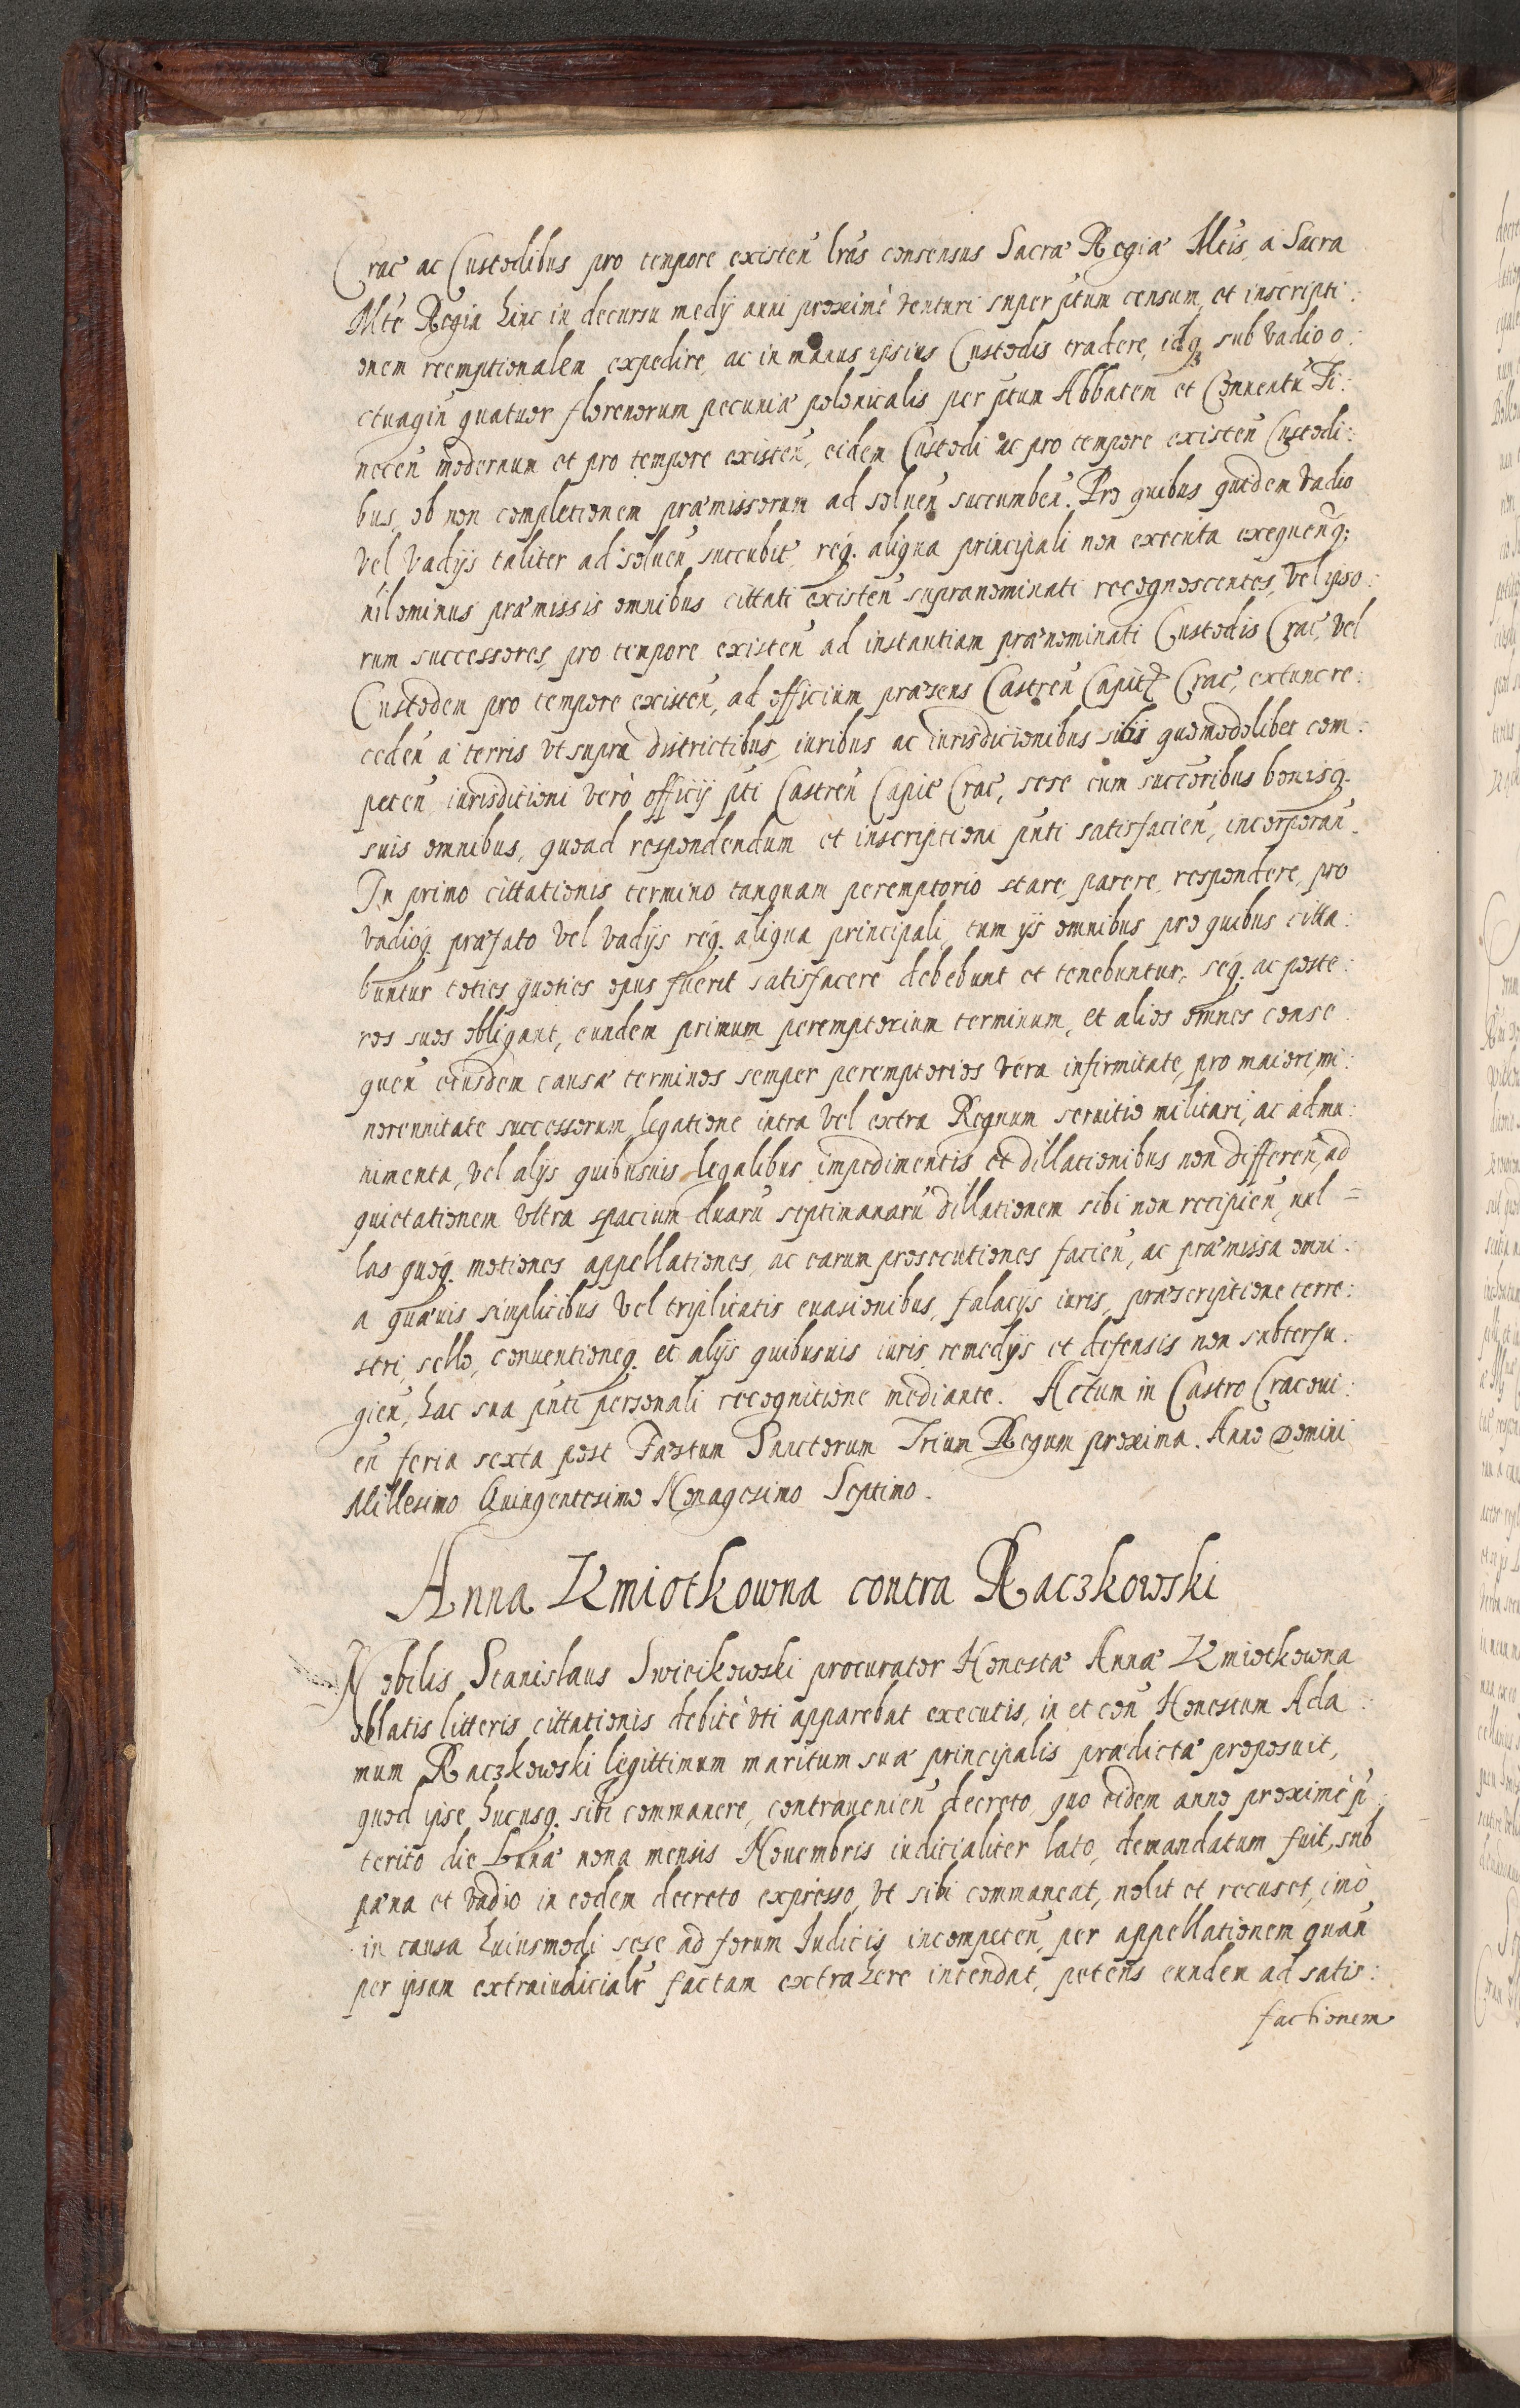 Crac̃ ac Custodibus pro tempore existeñ lr̃as consensus Sacræ Regiæ Mtis, a Sacra
Mte Regia hinc in decursu medÿ anni proximè venturi super p̃tum censum, et inscripti:
onem reemptionalem expedire, ac in manus ipsius Custodis tradere, idq₃ sub vadio o:
ctuagiñ quatuor florenorum pecuniæ polonicalis per p̃tum Abbatem et Conuentũ Ti:
neceñ modernum et pro tempore existeñ, eidem Custodi ac pro tempore existeñ Custodi:
bus, ob non completionem præmissorum ad solueñ succumbeñ. Pro quibus quidem vadio
vel vadijs taliter ad solueñ succubit̃, req̃. aliqua principali non executa exequeñq;
nilominus præmissis omnibus cittati existeñ supranominati recognoscentes, vel ipso:
rum successores, pro tempore existeñ ad instantiam prænominati Custodis Crac̃, vel
Custodem pro tempore existeñ, ad officium præsens Castreñ Capit̃ Crac̃, extunc re:
cedeñ a terris vt supra districtibus, iuribus ac iurisdicionibus sibi quomodolibet com:
peteñ iurisditioni verò officij p̃ti Castreñ Capit̃ Crac̃, sese cum succoribus bonisq.
suis omnibus, quoad respondendum et inscriptioni p̃nti satisfacieñ, incorporañ.
In primo cittationis termino tanquam peremptorio stare, parere, respondere, pro
vadioq. præfato vel vadijs req̃. aliqua principali, cum ijs omnibus pro quibus citta:
buntur toties quoties opus fuerit satisfacere debebunt et tenebuntur, seq̃. ac poste:
ros suos obligant, eundem primum peremptorium terminum, et alios omnes conse:
queñ eiusdem causæ terminos semper peremptorios vera infirmitate, pro maiori, mi:
norennitate successorum legatione intra vel extra Regnum seruitio militari, ac ad mu:
nimenta, vel alijs quibusuis legalibus impedimentis et dillationibus non differeñ, ad
quietationem vltra spacium duarũ septimanarũ dillationem sibi non recipieñ, nul =
las quoq. motiones appellationes, ac earum prosecutiones facieñ, ac præmissa omni:
a quæuis simplicibus vel triplicatis euasionibus, falacijs iuris, præscriptione terre:
stri, sello, conuentioneq. et alijs quibusuis iuris remedijs et defensis non subterfu:
gieñ, hac sua p̃nti personali recognitione mediante. Actum in Castro Cracoui:
eñ feria sexta post Fæstum Sanctorum Trium Regum proxima. Anno Domini
Millesimo Quingentesimo Nonagesimo Septimo.
Anna Kmiotkowna contra Raczkowski
Nobilis Stanislaus Swiecikowski procurator Honestæ Annæ Kmiotkowna
oblatis litteris cittationis debitè vti apparebat executis, in et coñ Honestum Ada:
mum Raczkowski legittimum maritum suæ principalis prædictæ proposuit,
quod ipse hucusq. sibi commanere, contraueniеñ decreto, quo eidem anno proximè p̃:
terito die Lunæ nona mensis Nouembris iudicialiter lato, demandatum fuit, sub
pæna et vadio in eodem decreto expresso, vt sibi commaneat, nolit et recuset, imò
in causa huiusmodi sese ad forum Iudicij incompeteñ, per appellationem quañ
per ipsam extraiudicialr̃ factam extrahere intendat, petens eundem ad satis:
factionem